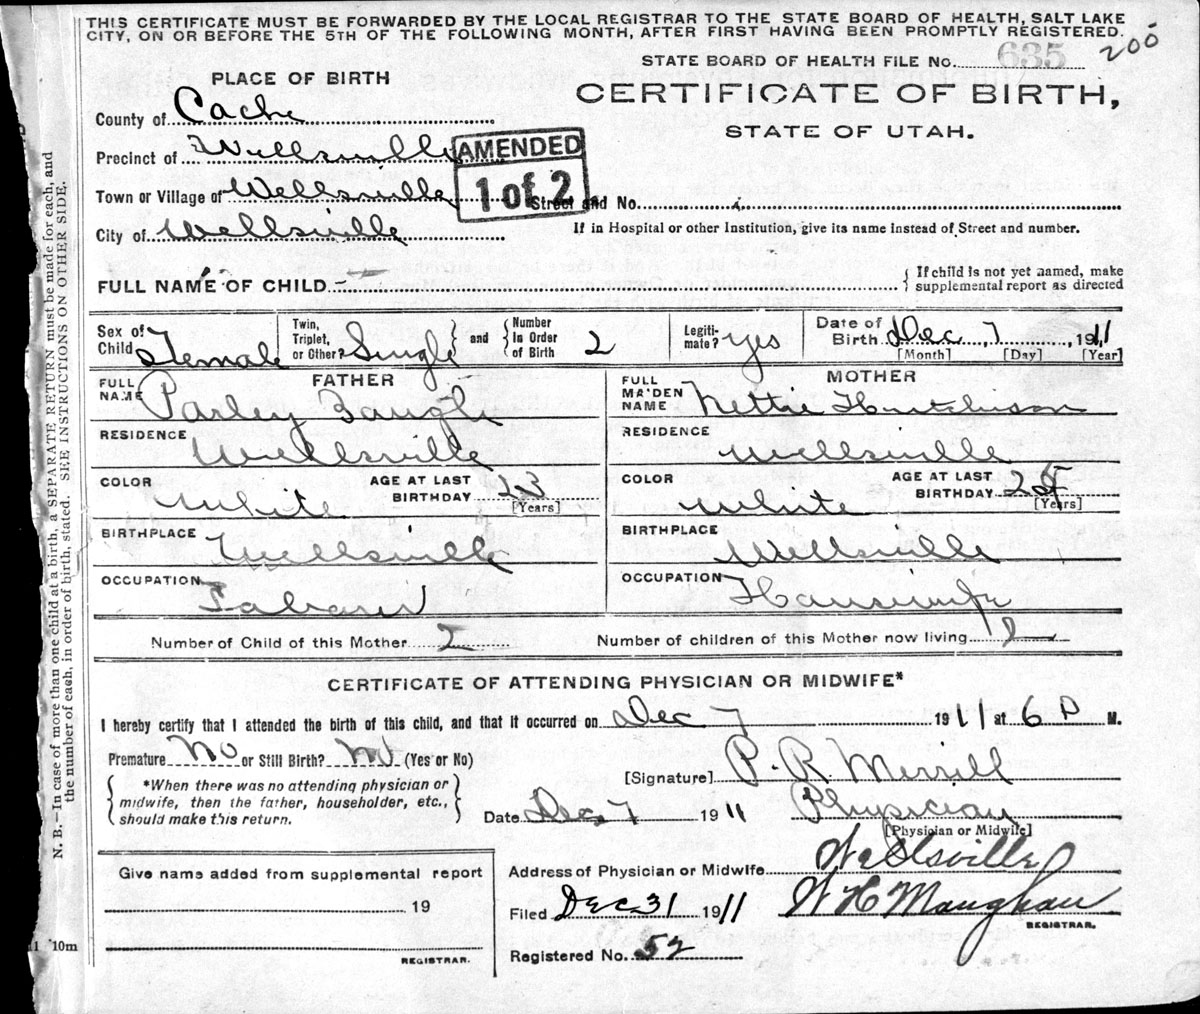 THIS CERTIFICATE MUST BE FORWARDED BY THE LOCAL REGISTRAR TO THE STATE BOARD OF HEALTH, SALT LAKE
CITY, ON OR BEFORE THE 5TH OF THE FOLLOWING MONTH, AFTER FIRST HAVING BEEN PROMPTLY REGISTERED.
200
STATE BOARD OF HEALTH FILE No. 635
PLACE OF BIRTH
CERTIFICATE OF BIRTH,
STATE OF UTAH.
County of Cache
Precinct of Wellsville
AMENDED
1 of 2
Town or Village of Wellsville
Street and No.
City of Wellsville
If in Hospital or other Institution, give its name instead of Street and number.
FULL NAME OF CHILD
If child is not yet named, make
supplemental report as directed
Sex of Child Female
Twin, Triplet, or Other? Single
and Number In Order of Birth 2
Legitimate? yes
Date of Birth Dec 7, 1911
[Month] [Day] [Year]
FATHER
FULL NAME Parley
RESIDENCE Wellsville
COLOR White
AGE AT LAST BIRTHDAY 23
[Years]
BIRTHPLACE Wellsville
OCCUPATION
MOTHER
FULL MAIDEN NAME Nettie Hutchison
RESIDENCE Wellsville
COLOR White
AGE AT LAST BIRTHDAY
[Years]
BIRTHPLACE Wellsville
OCCUPATION Housewife
Number of Child of this Mother 2
Number of children of this Mother now living 2
CERTIFICATE OF ATTENDING PHYSICIAN OR MIDWIFE*
I hereby certify that I attended the birth of this child, and that it occurred on Dec 7 1911 at 6 P M.
Premature No or Still Birth? No (Yes or No)
*When there was no attending physician or
midwife, then the father, householder, etc.,
should make this return.
[Signature] P. R. Merrill
Date Dec 7 1911
Physician
[Physician or Midwife]
Give name added from supplemental report
19
REGISTRAR.
Address of Physician or Midwife Wellsville
Filed Dec 31 1911
W H Maughan
REGISTRAR.
Registered No. 52
N. B.—In case of more than one child at a birth, a SEPARATE RETURN must be made for each, and
the number of each, in order of birth, stated. SEE INSTRUCTIONS ON OTHER SIDE.
10m